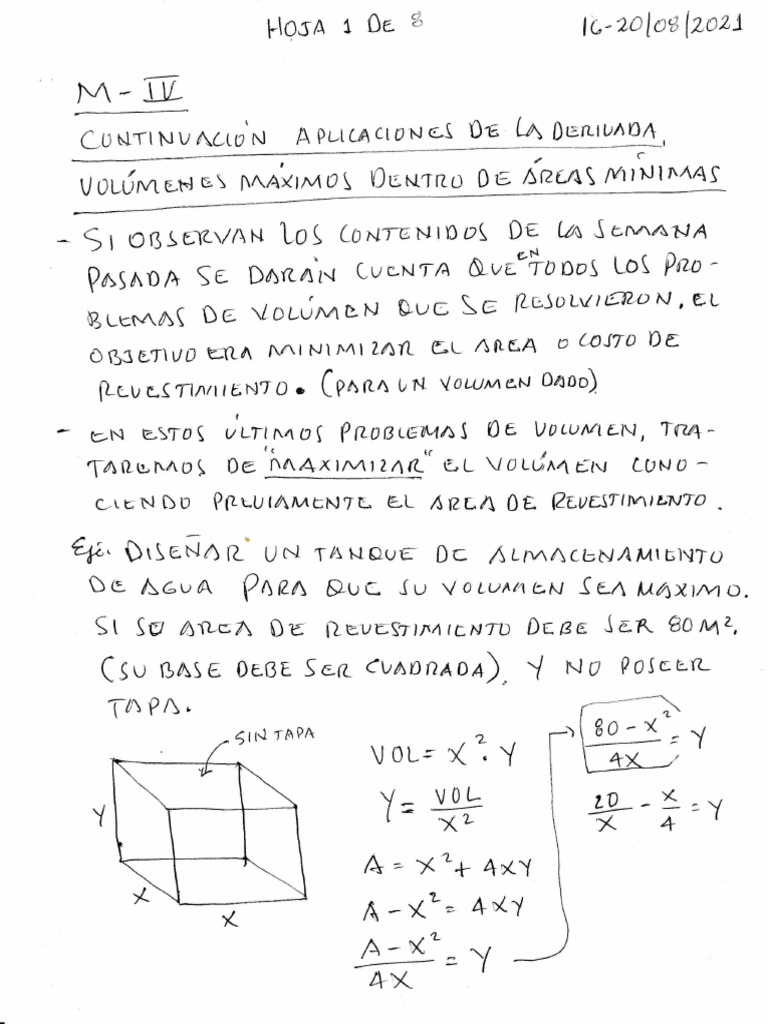 HOJA 1 DE 8
16-20/08/2021
M-IV
CONTINUACIÓN APLICACIONES DE LA DERIVADA,
VOLÚMENES MÁXIMOS DENTRO DE ÁREAS MÍNIMAS
- SI OBSERVAN LOS CONTENIDOS DE LA SEMANA
PASADA SE DARÁN CUENTA QUE EN TODOS LOS PRO-
BLEMAS DE VOLÚMEN QUE SE RESOLVIERON, EL
OBJETIVO ERA MINIMIZAR EL AREA O COSTO DE
REVESTIMIENTO. (PARA UN VOLUMEN DADO)
- EN ESTOS ÚLTIMOS PROBLEMAS DE VOLUMEN, TRA-
TAREMOS DE "MAXIMIZAR" EL VOLÚMEN CONO-
CIENDO PREVIAMENTE EL AREA DE REVESTIMIENTO.
Eje. DISEÑAR UN TANQUE DE ALMACENAMIENTO
DE AGUA PARA QUE SU VOLUMEN SEA MAXIMO.
SI SU AREA DE REVESTIMIENTO DEBE SER 80 M².
(SU BASE DEBE SER CUADRADA), Y NO POSEER
TAPA.
SIN TAPA
Y
X
X
VOL = X² · Y
Y = VOL / X²
A = X² + 4XY
A - X² = 4XY
A - X² / 4X = Y
80 - X² / 4X = Y
20 / X - X / 4 = Y